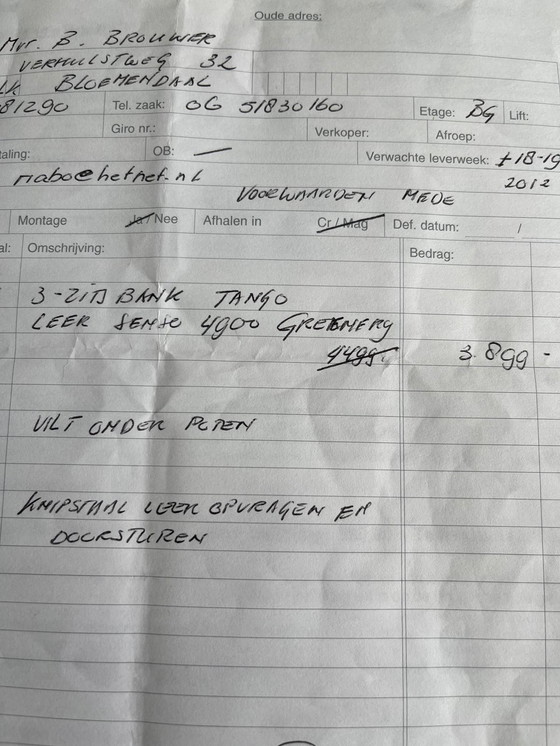 Oude adres:
Mvr. B. BROUWER
VERHULSTWEG 32
LK BLOEMENDAAL
81290 Tel. zaak: 06 51830160 Etage: BG Lift:
Giro nr.: Verkoper: Afroep:
taling: OB: — Verwachte leverweek: ±18-19
mabo@hetnet.nl 2012
VOORWAARDEN MEDE
Montage Ja/Nee Afhalen in Cr / Mag Def. datum: /
al: Omschrijving: Bedrag:
3-ZITS BANK TANGO
LEER SENSO 4900 GREENERY
4499. 3.899 -
VILT ONDER POTEN
KNIPSTAAL LEER OPVRAGEN EN
DOORSTUREN